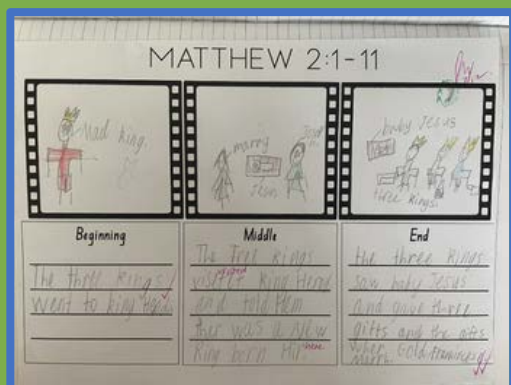 MATTHEW 2:1-11
Mad king.
marry
Jesus
baby Jesus
three kings.
Beginning
The three kings
went to king
Middle
The Tree kings
king Herod
and told Hem
ther was a New
King born
here
End
the three kings
saw baby Jesus
and gave three
gifts and the
wher Gold